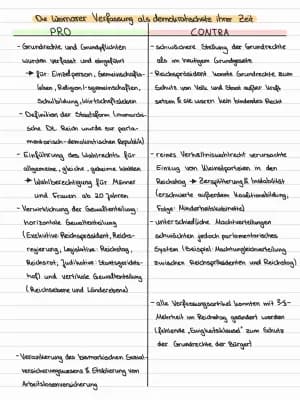 Die Weimarer Verfassung als demokratischste ihrer Zeit
PRO
- Grundrechte und Grundpflichten
wurden verfasst und eingeführt
→ für Einzelperson, Gemeinschafts-
leben, Religionsgemeinschaften,
Schulbildung, Wirtschaftsleben
- Definition der Staatsform (monarchi-
sche Dt. Reich wurde zur parla-
mentarisch-demokratischen Republik)
- Einführung des Wahlrechts für
allgemeine, gleiche, geheime Wahlen
→ Wahlberechtigung für Männer
und Frauen ab 20 Jahren
- Verwirklichung der Gewaltenteilung:
horizontale Gewaltenteilung
(Exekutive: Reichspräsident, Reichs-
regierung, Legislative: Reichstag,
Reichsrat, Judikative: Staatsgerichts-
hof) und vertikale Gewaltenteilung
(Reichsebene und Länderebene)
- Verankerung des bismarkischen Sozial-
versicherungswesens & Etablierung von
Arbeitslosenversicherung
CONTRA
- schwächere Stellung der Grundrechte
als im heutigen Grundgesetz
- Reichspräsident konnte Grundrechte zum
Schutz von Volk und Staat außer Kraft
setzen & sie waren kein bindendes Recht
- reines Verhältniswahlrecht verursachte
Einzug von Kleinstparteien in den
Reichstag → Zersplitterung & Instabilität
(erschwerte außerdem Koalitionsbildung,
Folge: Minderheitskabinette)
- unterschiedliche Machtverteilungen
schwächten jedoch parlamentarisches
System (beispiel: Machtungleichverteilung
zwischen Reichspräsident und Reichstag)
- alle Verfassungsartikel konnten mit 2/3-
Mehrheit im Reichstag geändert werden
(fehlende „Ewigkeitsklausel" zum Schutz
der Grundrechte der Bürger)